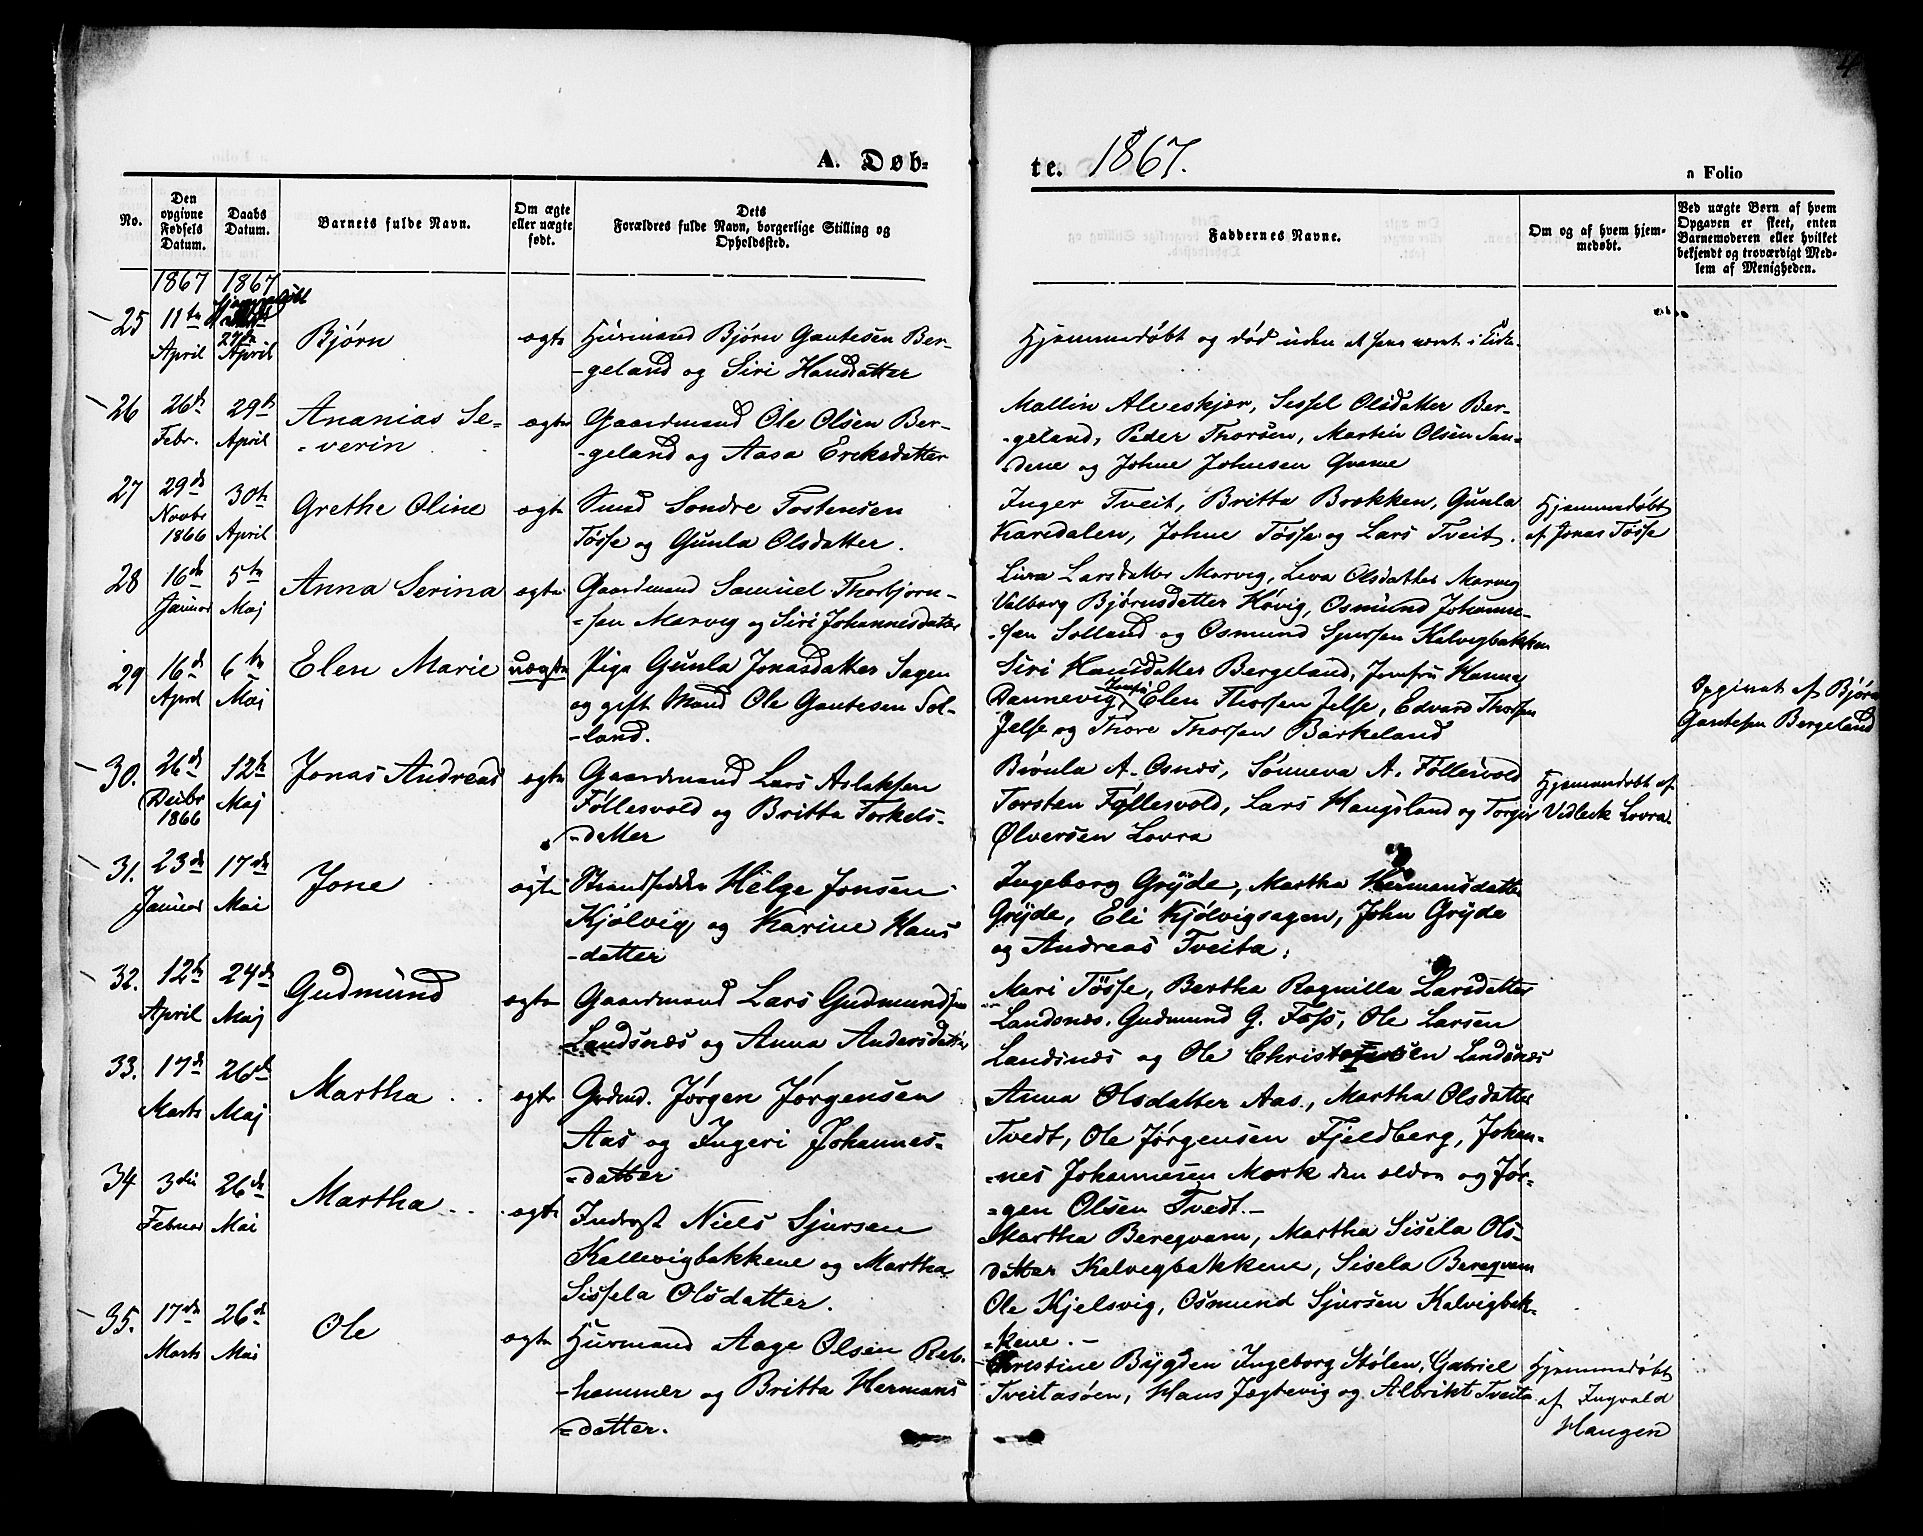 4
A. Døb-
te. 1867.
n Folio
No.
Den opgivne Fødsels Datum.
Daabs Datum.
Barnets fulde Navn.
Om ægte eller uægte født.
Dets Forældres fulde Navn, borgerlige Stilling og Opholdssted.
Faddernes Navne.
Om og af hvem hjem-
medøbt.
Ved uægte Børn af hvem
Opgaven er skeet, enten
Barnemoderen eller hvilket
bekjendt og troværdigt Med-
lem af Menigheden.
1867 1867
25 11te April
27de April
Bjørn
ægte
Husmand Bjørn Gautesen Ber-
-geland og Siri Hansdatter
Hjemmedøbt og død uden at have været i Kirke.
26 26de Febr. 29de April
Ananias Se-
-verin
ægte
Gaardmand Ole Olsen Ber-
-geland og Aasa Ericksdatter
Mallin Aleeskjær, Sissel Olsdatter Ber-
-geland, Peder Thorsen, Martin Olsen San-
-dene og Johne Johnesen Qvame
27 29de Novbr 1866 30te April
Grethe Oline
ægte
Smed Sondre Tostensen
Tøsse og Gunla Olsdatter.
Inger Tveit, Britta Brækken, Gunla
Karidalen, Johne Tøsse og Lars Tveit.
Hjemmedøbt
af Jonas Tøsse
28 16de Januar 5te Maj
Anna Serina
ægte
Gaardmand Samuel Thorbjørn-
-sen Marvig og Siri Johannesdatter
Liva Larsdatter Marvig, Liva Olsdatter Marvig
Valborg Bjørnsdatter Høvig, Osmund Johanne-
-sen Solland og Osmund Sjursen Kalvigbakken
29 16de April 6te Maj
Elen Marie
uægte
Pige Gunla Jonasdatter Sagen
og gift Mand Ole Gautesen Sol-
-land.
Siri Hansdatter Bergeland, Jomfru Hanna
Dannevig, Jomfru Elen Thorsen Jelse, Edvard Thorsen
Jelse og Thore Thorsen Barkeland
Opgivet af Bjørn
Gautesen Bergeland
30. 26de Decbr 1866 12te Maj
Jonas Andreas
ægte
Gaardmand Lars Aslaksen
Føllesvold og Britta Torkels-
-datter
Brynla A. Osnes, Sønneva A. Føllesvold
Torsten Føllesvold, Lars Haugsland og Torgir
Ølversen Lovra
Hjemmedøbt af
Vidleik Lovra.
31. 23de Januar 17de Mai
Jone
ægte
Strandsidder Helge Jonsen
Kjølvig og Karine Hans
-datter
Ingeborg Gryde, Martha Hermansdatter
Gryde, Eli Kjølvigsagen, John Gryde
og Andreas Tveita.
32. 12te April 24de Maj
Gudmund
ægte
Gaardmand Lars Gudmundsen
Landsnæs og Anna Andersdatter
Mari Tøsse, Bertha Ragnilla Larsdatter
Landsnæs. Gudmund G. Foss, Ole Larsen
Landsnæs og Ole Christophersen Landsnæs
33. 17de Marts 26de Maj
Martha
ægte
Grdmd. Jørgen Jørgensen
Aas og Ingeri Johannes-
-datter
Anna Olsdatter Aas., Martha Olsdatter
Tvedt, Ole Jørgensen Fjeldberg, Johan-
-nes Johannesen Mørk den ældre og Jør-
-gen Olsen Tvedt.-
34 3die Februar 26de Mai
Martha
ægte
Inderst Niels Sjursen
Kallevigbakkene og Martha
Sissela Olsdatter.
Martha Beregvam, Martha Sisela Ols-
datter Kalvegbakkene, Sisela Beregvam
Ole Kjelsvig, Osmund Sjursen Kalvigbak-
-kene.-
35. 17de Marts 26de Mai
Ole
ægte
Husmand Aage Olsen Reb.
-hammer og Britta Hermans
-datter.
Christine Bygden Ingeborg Stølen, Gabriel
Tveitasøen, Hans Jægtevig og Albrikt Tveita
Hjemmedøbt
af Ingvald
Haugen